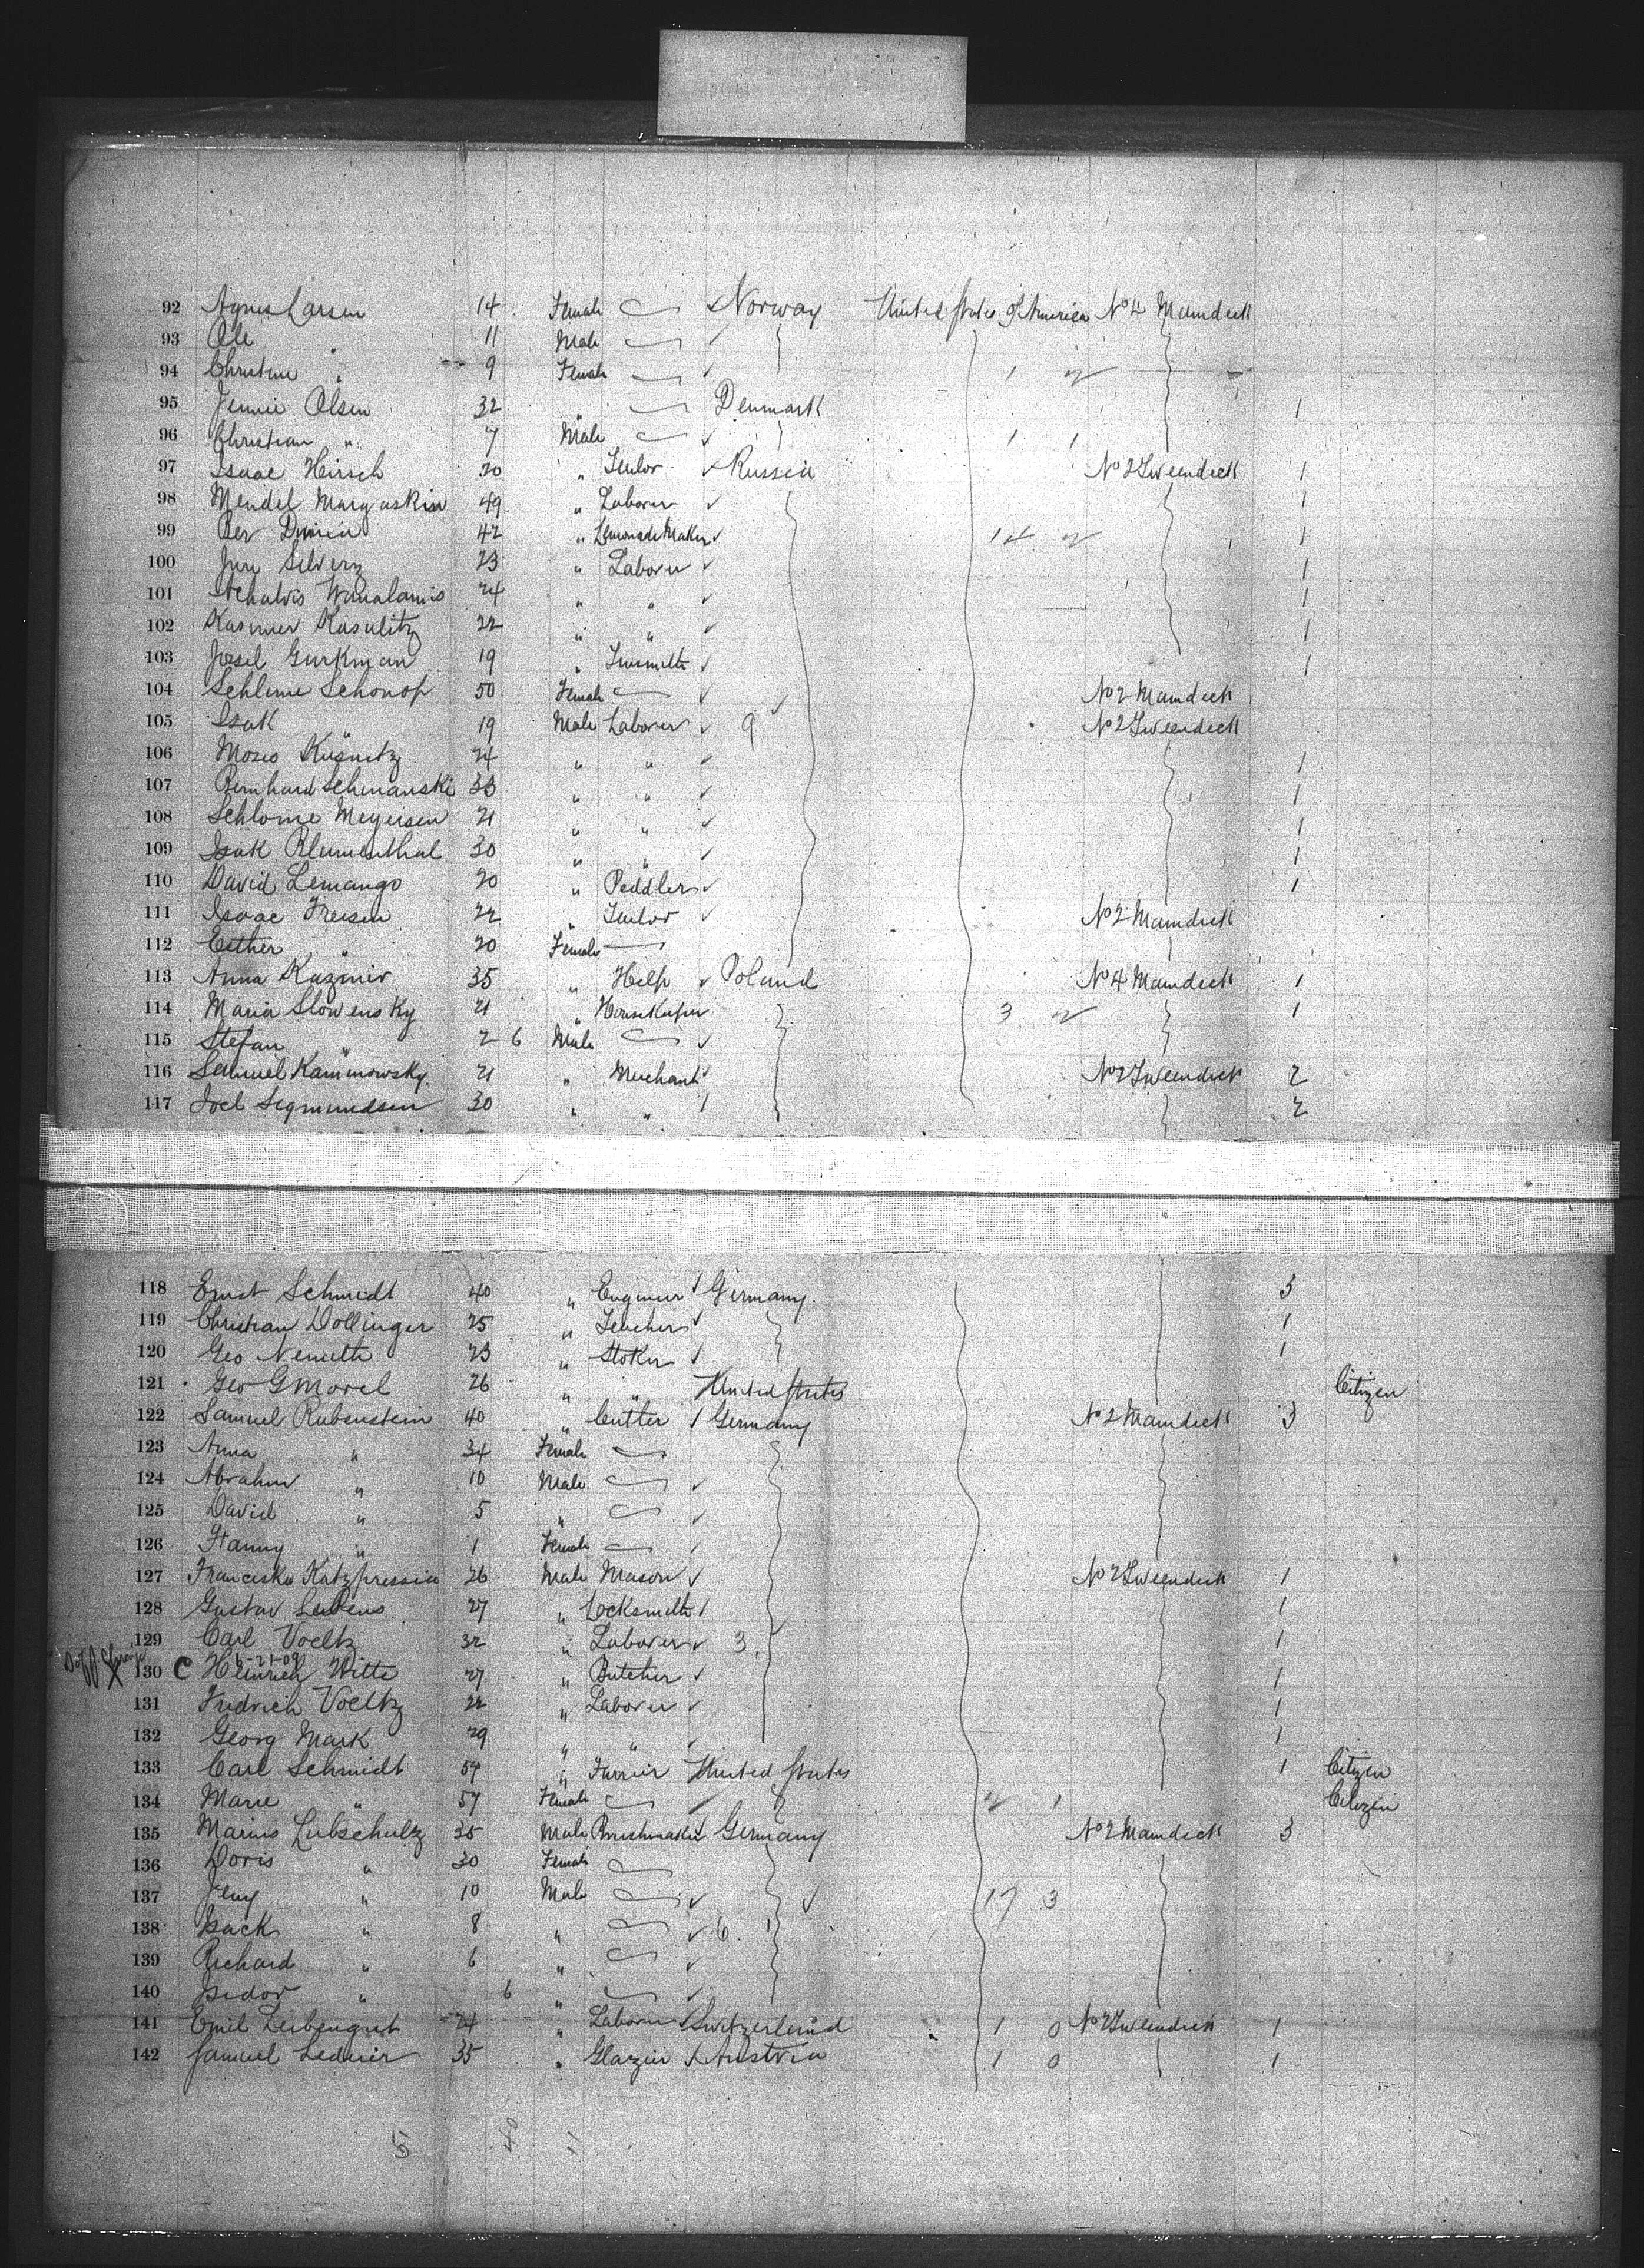 92 Agnes Larsen 14 Female Norway United States of America No 4 Maindeck
93 Ole " 11 Male
94 Christine " 9 Female 1 2
95 Jennie Olsen 32 " Denmark 1
96 Christian " 7 Male 1 1
97 Isaac Hirsch 20 " Tailor Russia No 2 Tweendeck 1
98 Mendel Margaskin 49 " Laborer 1
99 Ber 42 " Lemonade Maker 14 2 1
100 Jure Silverz 23 " Laborer 1
101 24 " " 1
102 Kasimer Kasulitz 22 " " 1
103 Josel Gurkman 19 " Tinsmith 1
104 Schleme Schonop 50 Female No 2 Maindeck
105 Isak " 19 Male Laborer 9 No 2 Tweendeck
106 Moses Kusnitz 24 " " 1
107 Bernhard Schmanski 33 " " 1
108 Schlome Meyersen 21 " " 1
109 Isak Blumenthal 30 " " 1
110 David Lemango 20 " Peddler 1
111 Isaac Treisen 22 " Tailor No 2 Maindeck
112 Esther " 20 Female
113 Anna Kazmir 35 " Help Poland No 4 Maindeck 1
114 Maria Slowensky 21 " Housekeeper 3 2 1
115 Stefan " 2 6 Male
116 Samuel Kaminowsky 21 " Merchant No 2 Tweendeck 2
117 Joel Segmundsen 30 " " 2
118 Ernst Schmidt 40 " Engineer Germany 3
119 Christian Dollinger 25 " Teacher 1
120 Geo Nemeth 23 " Stoker 1
121 Geo G Morel 26 " " United States Citizen
122 Samuel Rubenstein 40 " Cutler Germany No 2 Maindeck 3
123 Anna " 34 Female
124 Abraham " 10 Male
125 David " 5 "
126 Fanny " 1 Female
127 Franciska Katzpressia 26 Male Mason No 2 Tweendeck 1
128 Gustav 27 " Locksmith 1
129 Carl Voeltz 32 " Laborer 3 1
6-21-09
130 C Heinrich Witte 27 " Butcher 1
131 Fridrich Voeltz 22 " Laborer 1
132 Georg Mark 29 " " 1
133 Carl Schmidt 54 " Farrier United States 1 Citizen
134 Marie " 57 Female 2 1 Citizen
135 Marius Lubschulz 35 Male Brushmaker Germany No 2 Maindeck 3
136 Doris " 30 Female
137 Jeny " 10 Male 17 3
138 Isack " 8 " 6 1
139 Richard " 6 "
140 Isidor " 6 "
141 Emil Leibengut 24 " Laborer Switzerland 1 0 No 2 Tweendeck 1
142 Samuel Lederer 35 " Glazier Austria 1 0 1
5 40 11